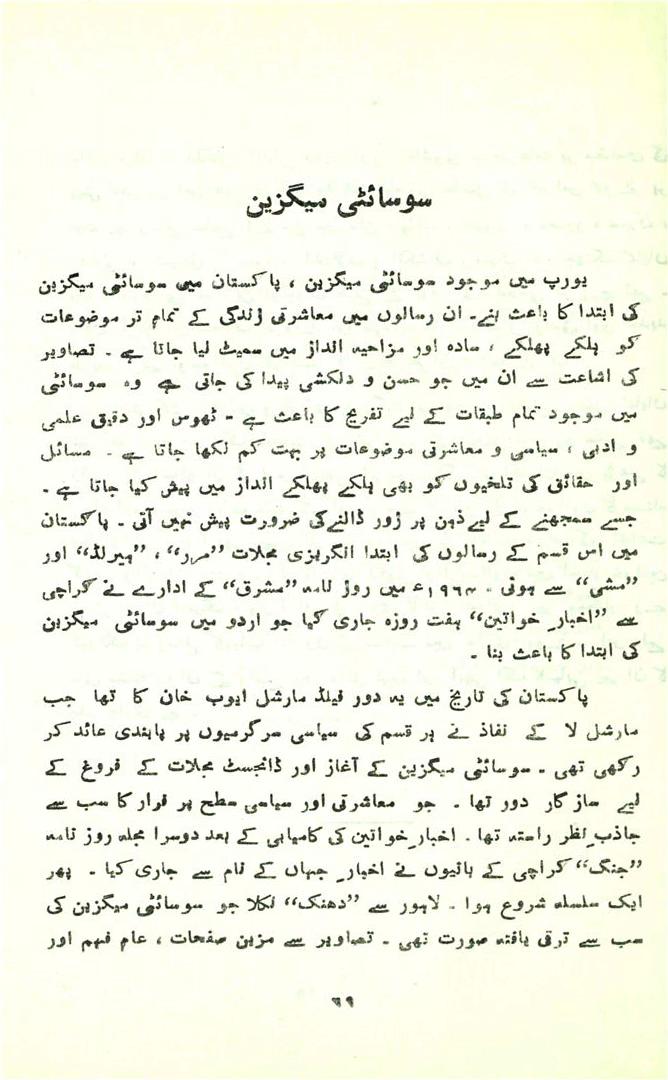 سوسائٹی میگزین
یورپ میں موجود سوسائٹی میگزین ، پاکستان میں سوسائٹی میگزین
کی ابتدا کا باعث بنے۔ ان رسالوں میں معاشرتی زندگی کے تمام تر موضوعات
کو ہلکے پھلکے ، سادہ اور مزاحیہ انداز میں سمیٹ لیا جاتا ہے ۔ تصاویر
کی اشاعت سے ان میں جو حسن و دلکشی پیدا کی جاتی ہے وہ سوسائٹی
میں موجود تمام طبقات کے لیے تفریح کا باعث ہے ۔ ٹھوس اور دقیق علمی
و ادبی ، سیاسی و معاشرتی موضوعات پر بہت کم لکھا جاتا ہے ۔ مسائل
اور حقائق کی تلخیوں کو بھی ہلکے پھلکے انداز میں پیش کیا جاتا ہے ۔
جسے سمجھنے کے لیے ذہن پر زور ڈالنے کی ضرورت پیش نہیں آتی ۔ پاکستان
میں اس قسم کے رسالوں کی ابتدا انگریزی مجلات ”مرر“ ، ”ہیرلڈ“ اور
”مشی“ سے ہوئی ۔ ۱۹۶۳ء میں روز نامہ ”مشرق“ کے ادارے نے کراچی
سے ”اخبارِ خواتین“ ہفت روزہ جاری کیا جو اردو میں سوسائٹی میگزین
کی ابتدا کا باعث بنا ۔
پاکستان کی تاریخ میں یہ دور فیلڈ مارشل ایوب خان کا تھا جب
مارشل لا کے نفاذ نے ہر قسم کی سیاسی سرگرمیوں پر پابندی عائد کر
رکھی تھی ۔ سوسائٹی میگزین کے آغاز اور ڈائجسٹ مجلات کے فروغ کے
لیے سازگار دور تھا ۔ جو معاشرتی اور سیاسی سطح پر فرار کا سب سے
جاذبِ نظر راستہ تھا ۔ اخبارِ خواتین کی کامیابی کے بعد دوسرا مجلہ روز نامہ
”جنگ“ کراچی کے بانیوں نے اخبارِ جہاں کے نام سے جاری کیا ۔ پھر
ایک سلسلہ شروع ہوا ۔ لاہور سے ”دھنک“ نکلا جو سوسائٹی میگزین کی
سب سے ترقی یافتہ صورت تھی ۔ تصاویر سے مزین صفحات ، عام فہم اور